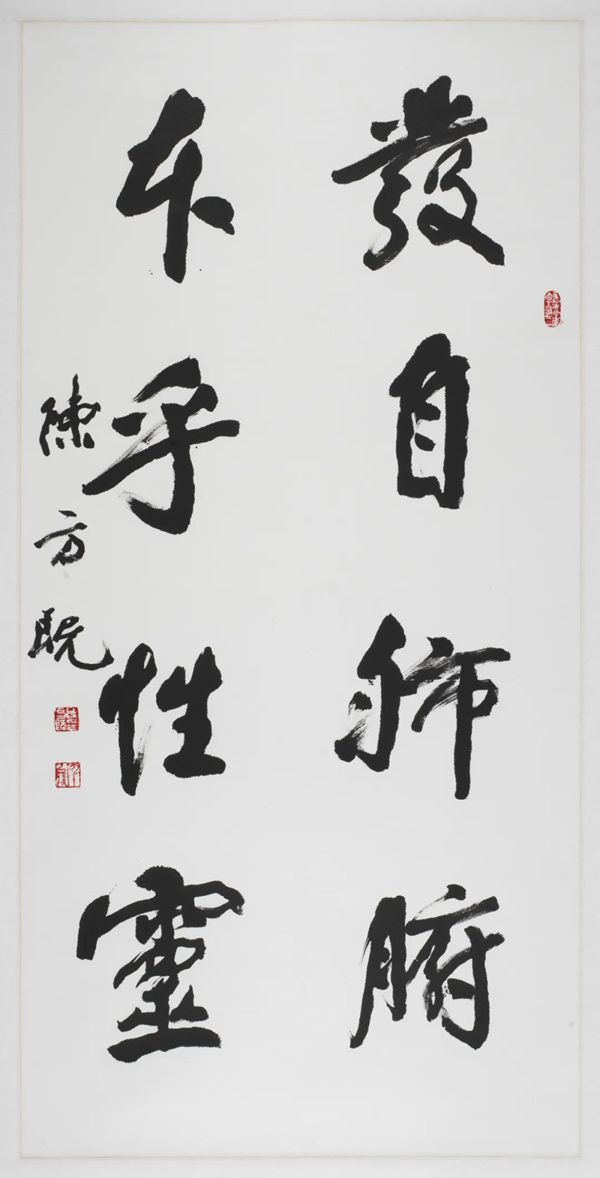 發自肺腑
本乎性靈
陳方既